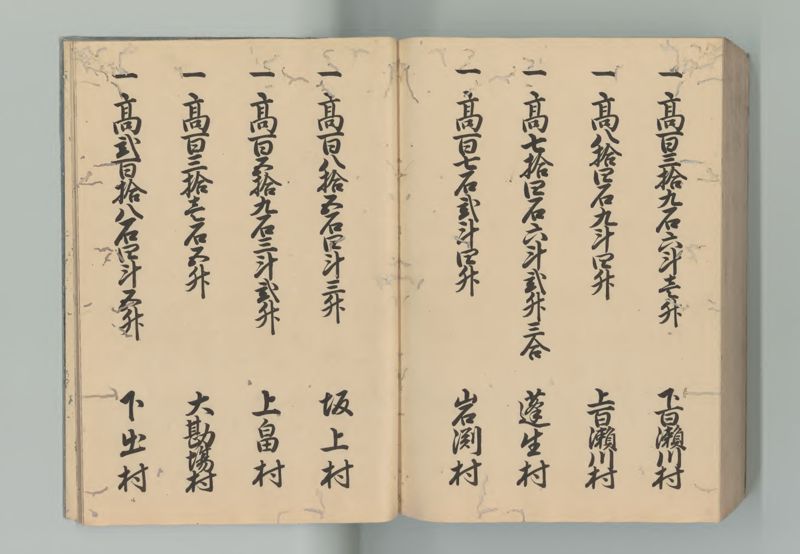 一高百三拾九石六斗壱升 下百瀬川村
一高八拾四石九斗四升 上百瀬川村
一高七拾四石六斗弐升三合 蓬生村
一高百七石弐斗四升 岩渕村
一高百八拾五石四斗三升 坂上村
一高百五拾九石三斗弐升 上畠村
一高百三拾壱石五升 大勘場村
一高弐百拾八石四斗五升 下出村